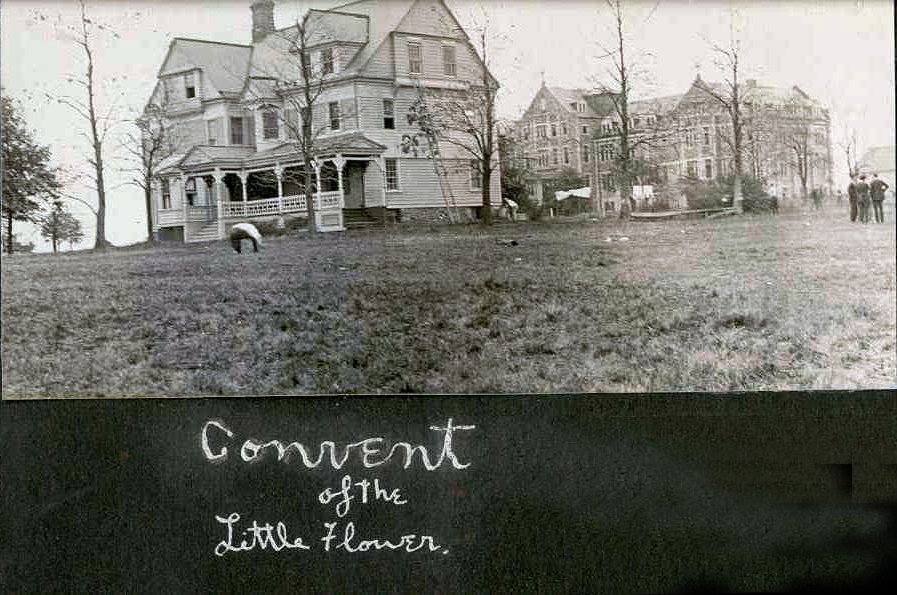 Convent
of the
Little Flower.